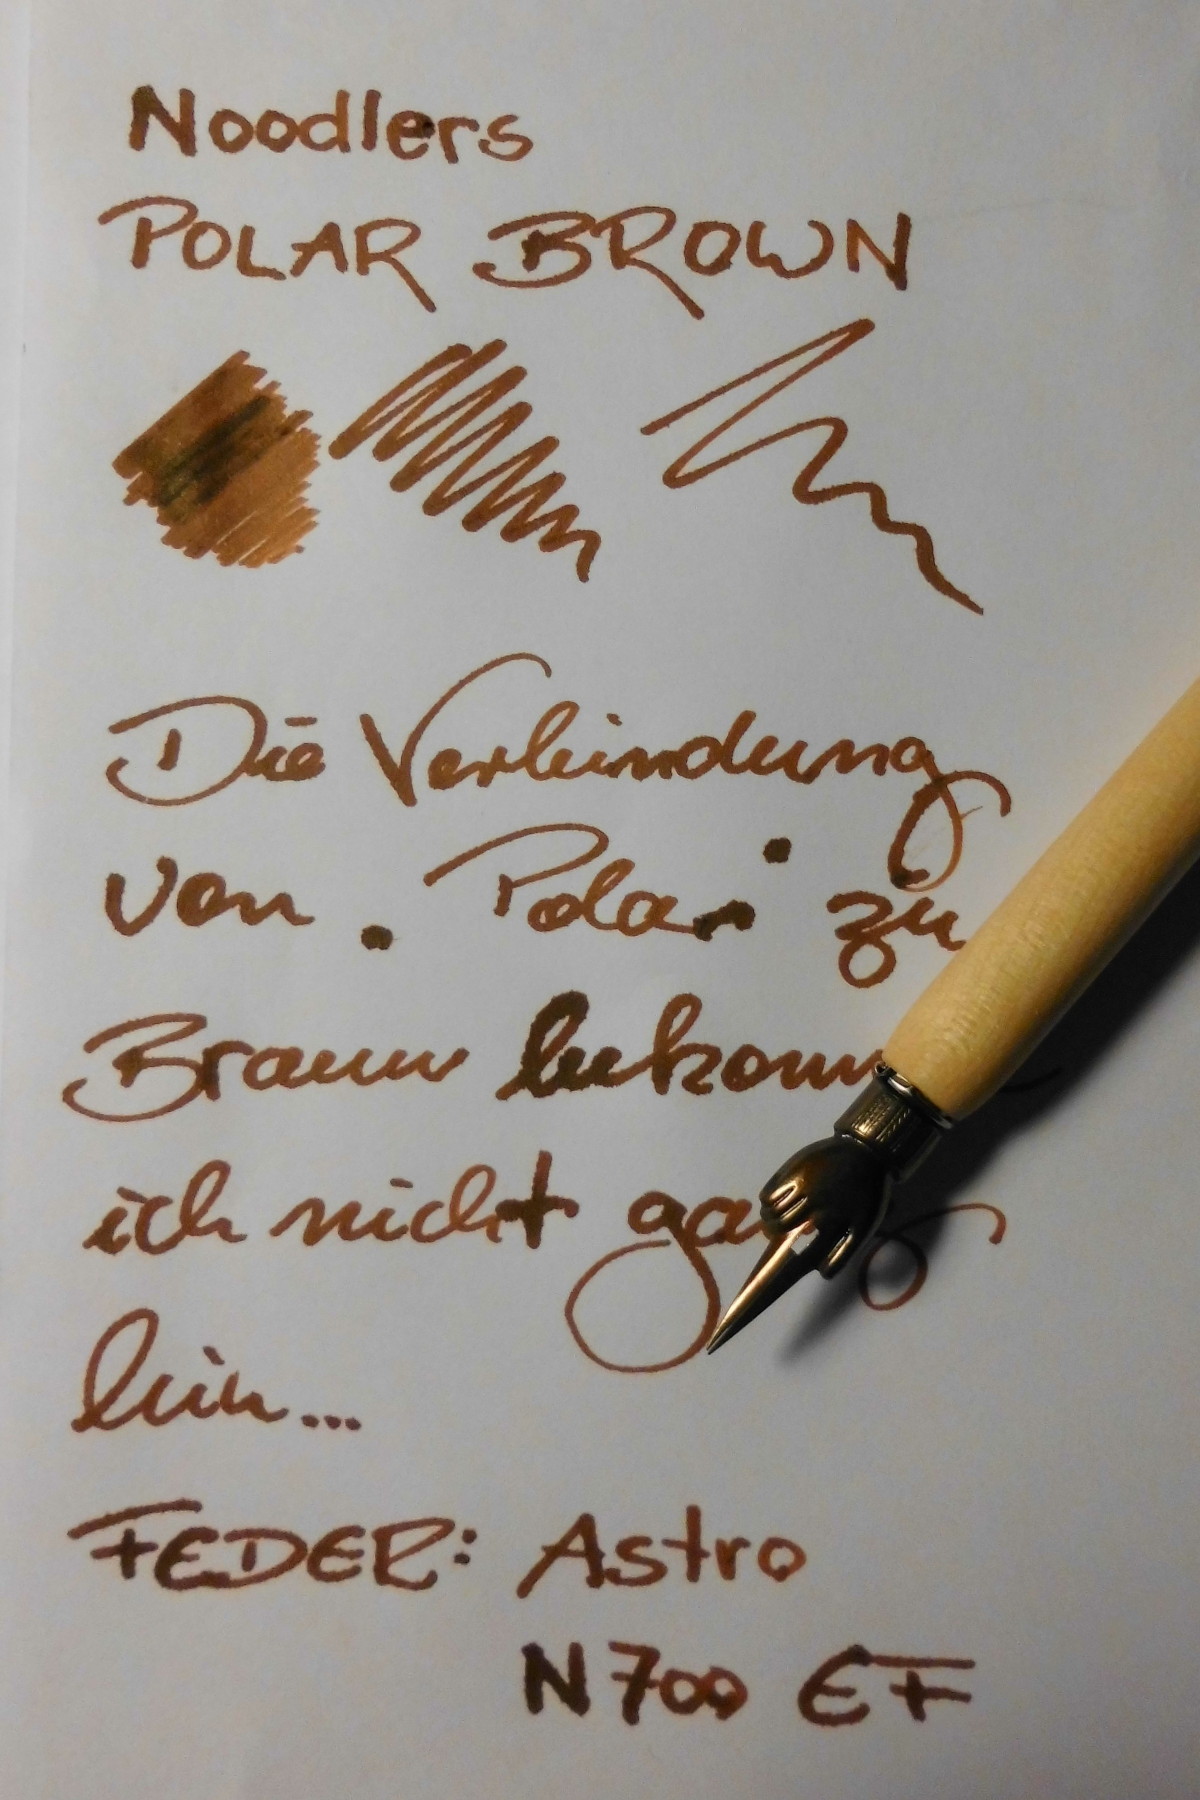 Noodlers
POLAR BROWN
Die Verbindung
von "Polar" zu
Braun bekomm
ich nicht ganz
hin...
FEDER: Astro
N700 EF